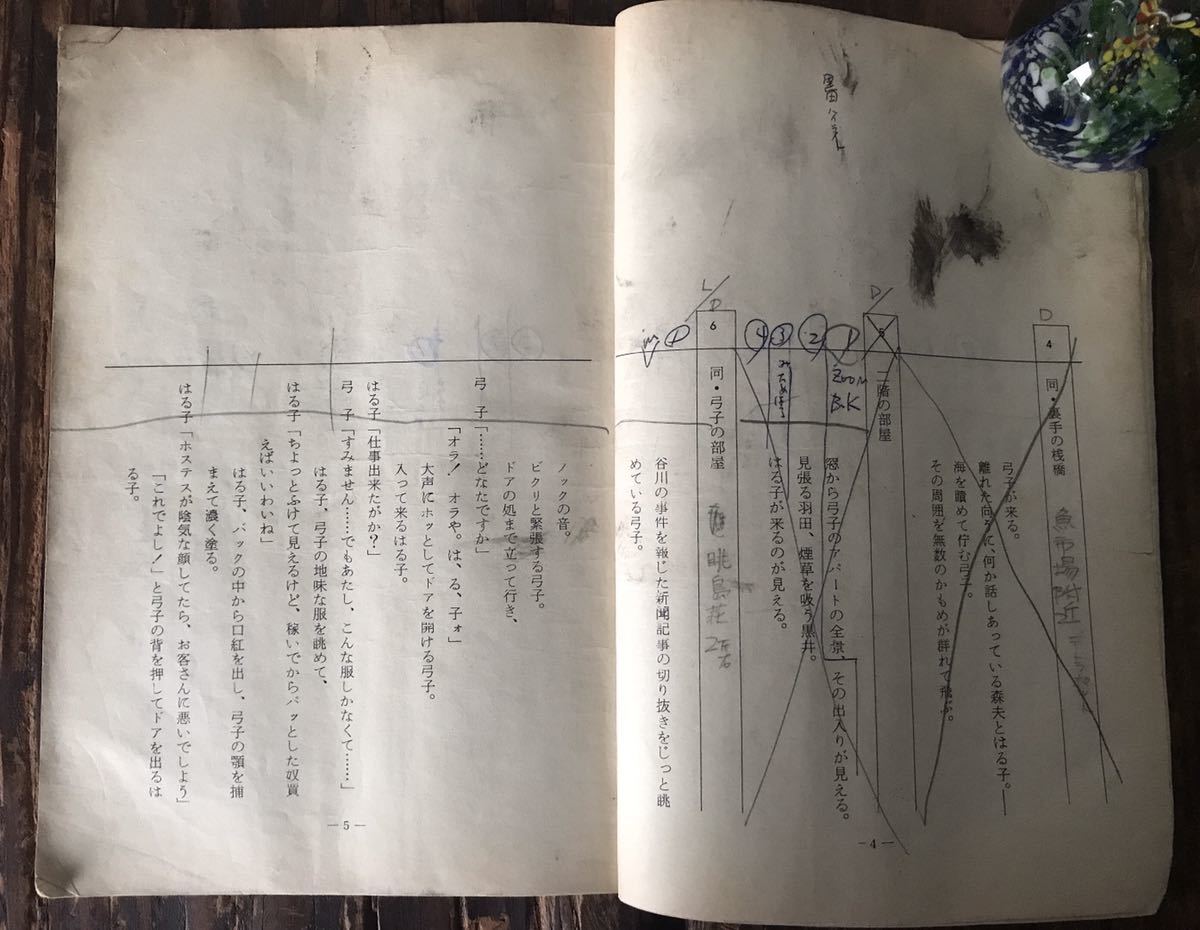 D
4
同・裏手の桟橋
魚市場附近
弓子が来る。
離れた向うに、何か話しあっている森夫とはる子。――
海を眺めて佇む弓子。
その周囲を無数のかもめが群れて飛ぶ。
D
5
二階の部屋
① ZOOM B.K
②
③
④
窓から弓子のアパートの全景、その出入りが見える。
見張る羽田、煙草を吸う黒井。
はる子が来るのが見える。
L/D
6
同・弓子の部屋
眺島荘
①
谷川の事件を報じた新聞記事の切り抜きをじっと眺
めている弓子。
―4―
ノックの音。
ビクリと緊張する弓子。
ドアの処まで立って行き、
弓 子「……どなたですか」
「オラ! オラや。は、る、子ォ」
大声にホッとしてドアを開ける弓子。
入って来るはる子。
はる子「仕事出来たがか?」
弓 子「すみません……でもあたし、こんな服しかなくて……」
はる子、弓子の地味な服を眺めて、
はる子「ちょっとふけて見えるけど、稼いでからパッとした奴買
えばいいわいね」
はる子、バックの中から口紅を出し、弓子の顎を捕
まえて濃く塗る。
はる子「ホステスが陰気な顔してたら、お客さんに悪いでしよう」
「これでよし!」と弓子の背を押してドアを出るは
る子。
―5―